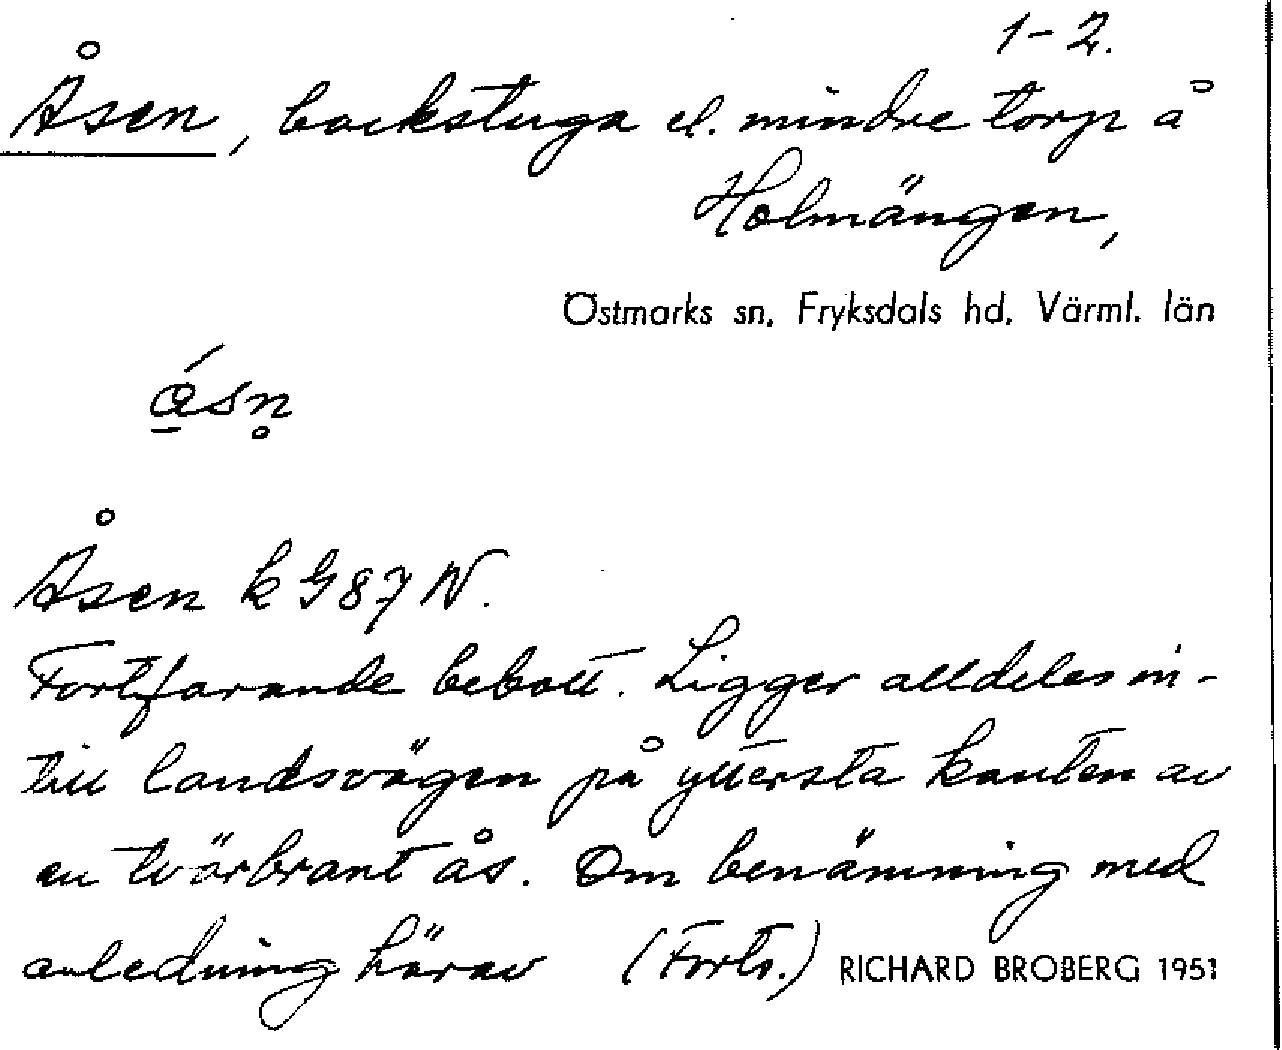 1-2.
Åsen, backstuga el. mindre torp å
Holmängen,
Östmarks sn, Fryksdals hd, Värml. län
ǻsn̥
Åsen k G87 N.
Fortfarande bebott. Ligger alldeles in-
till landsvägen på yttersta kanten av
en tvärbrant ås. Om benämning med
anledning härav (Forts.) RICHARD BROBERG 1951